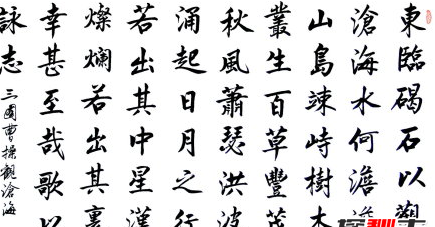 東臨碣石以觀
滄海水何澹澹
山島竦峙樹木
叢生百草豐茂
秋風蕭瑟洪波
涌起日月之行
若出其中星漢
燦爛若出其裏
幸甚至哉歌以
詠志
三國曹操觀滄海